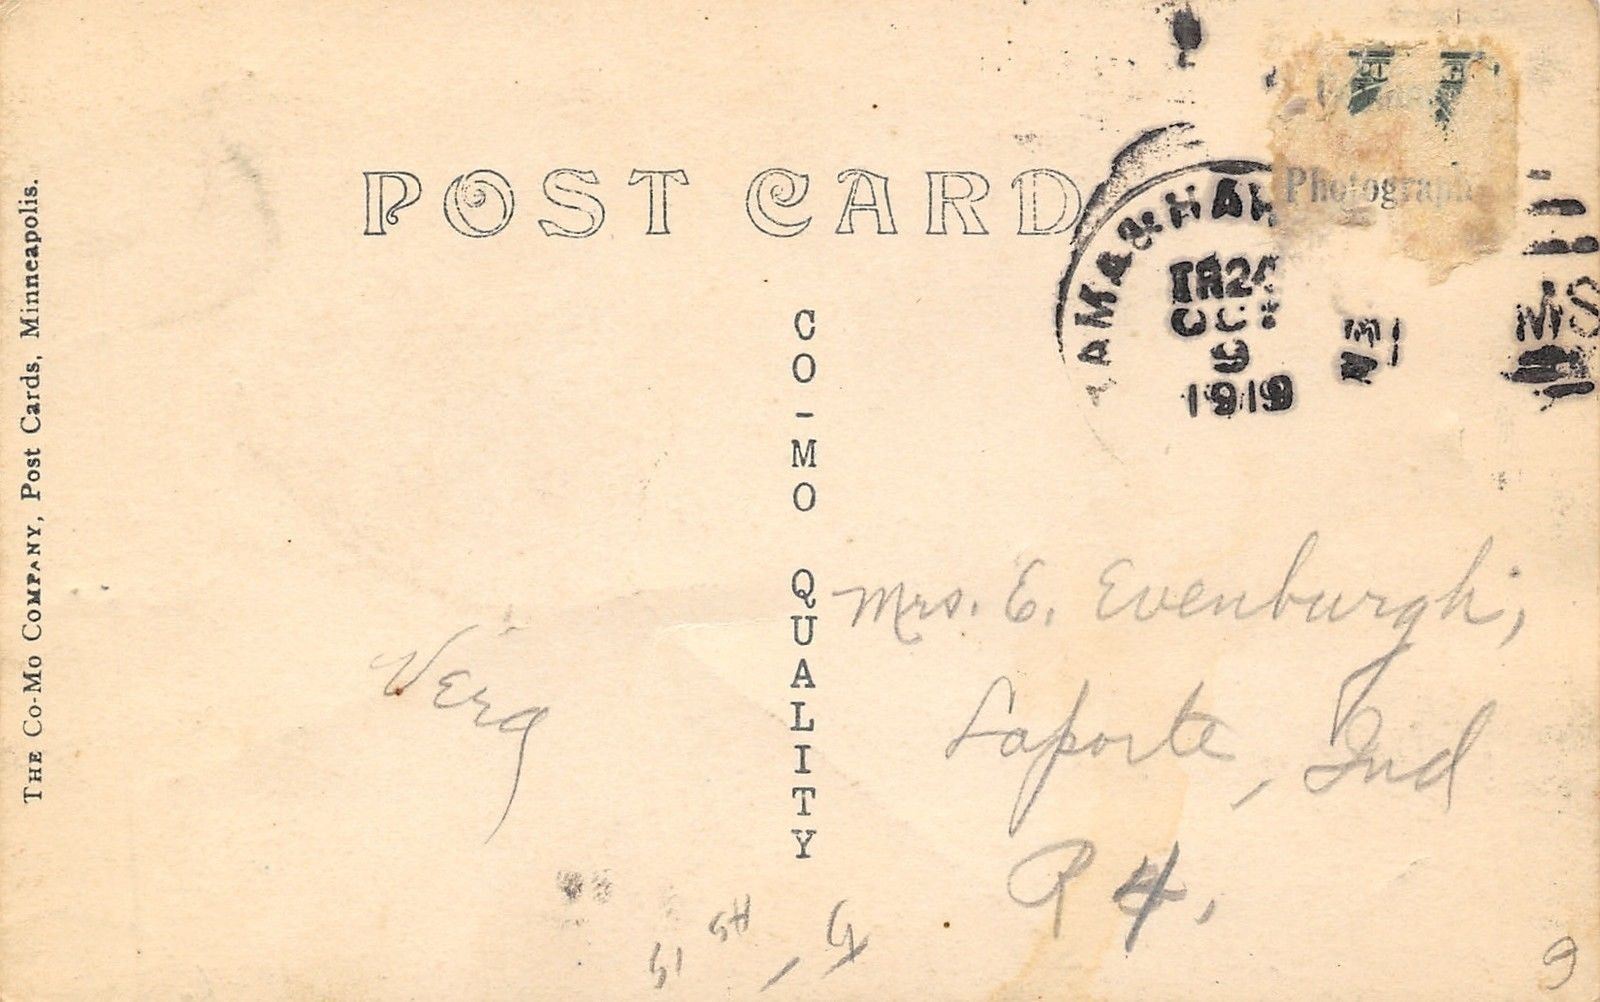 POST CARD
Photograph
AMA & HA
TR 24
OCT
9
1919
THE CO-MO COMPANY, Post Cards, Minneapolis.
CO-MO QUALITY
Vera
Mrs. E. Evenburgh,
Laporte, Ind
R 4,